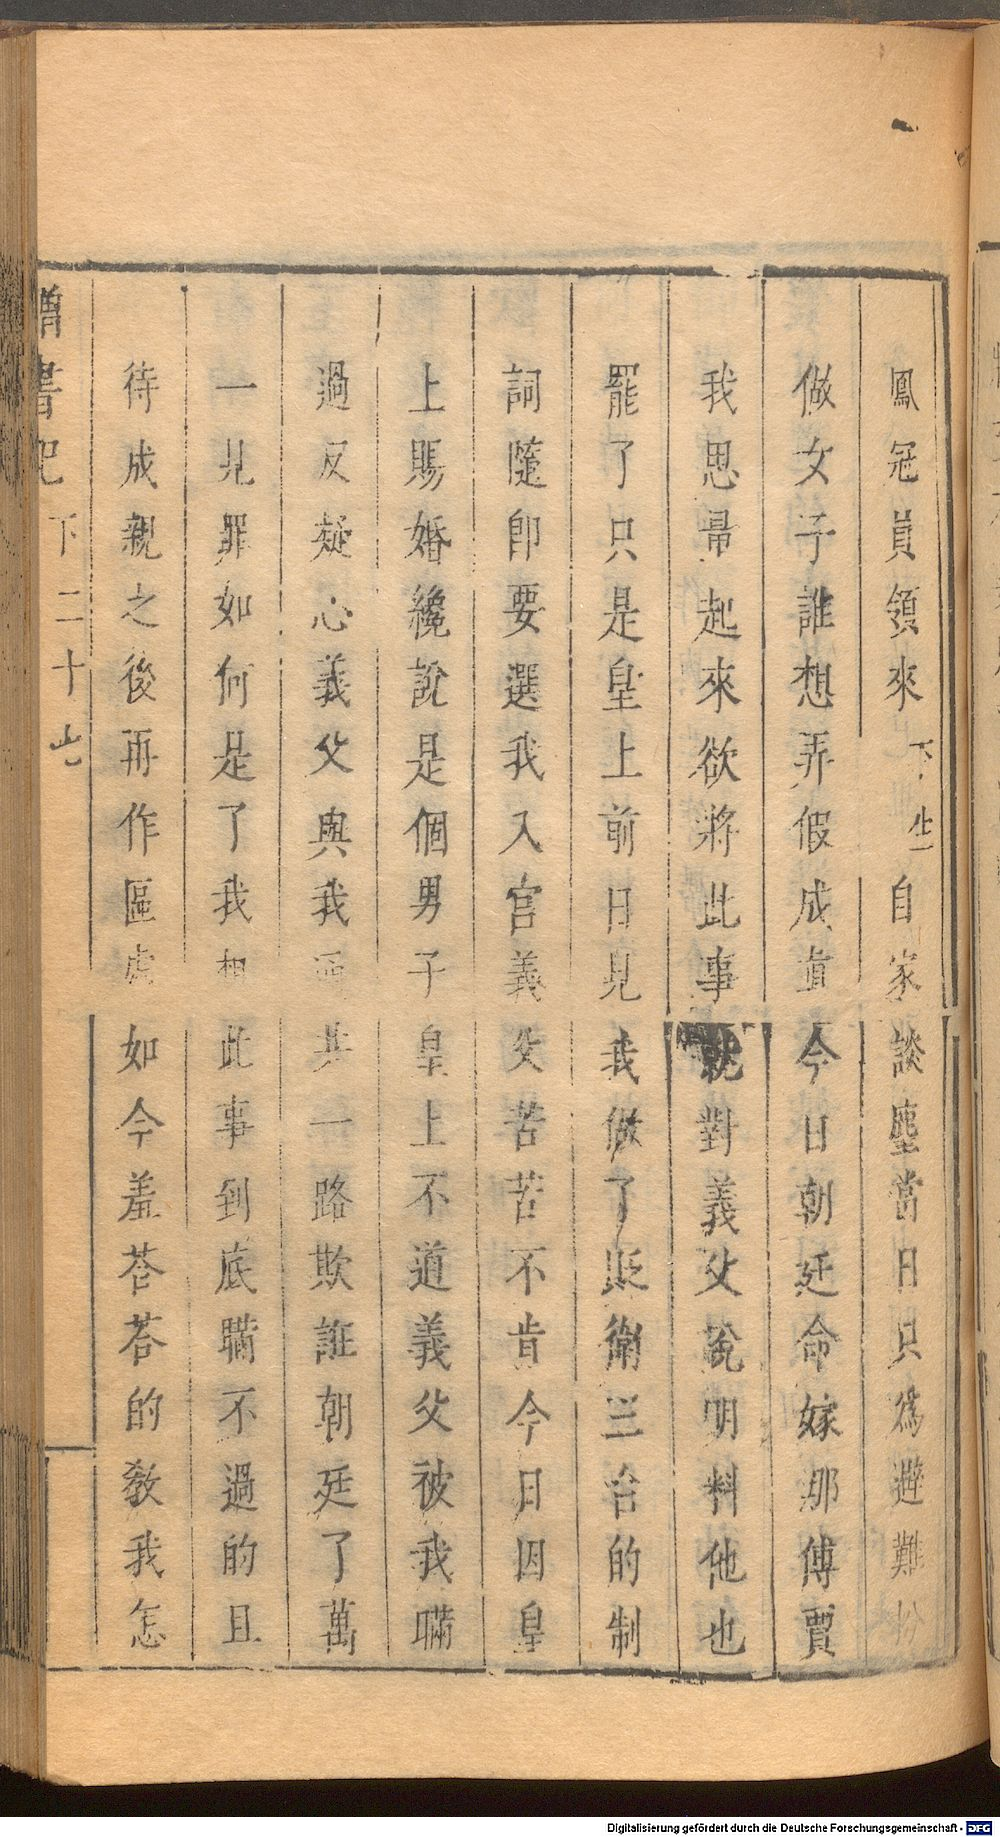 鳳冠員領來下生自家談塵當日只為避難扮
做女子誰想弄假成眞今日朝廷命嫁那傅賈
我思帚起來欲將此事就對義父說明料他也
罷了只是皇上前日見我做了貶衛兰台的制
詞隨卽要選我入宮義父苦苦不肯今日因皇
上賜婚纔說是個男子皇上不道義父被我瞞
過反疑心義父與我兩共一路欺誑朝廷了萬
一見罪如何是了我想此事到底瞞不過的且
待成親之後再作區處如今羞荅荅的教我怎
書記 下 二十
Digitalisierung gefördert durch die Deutsche Forschungsgemeinschaft - DFG